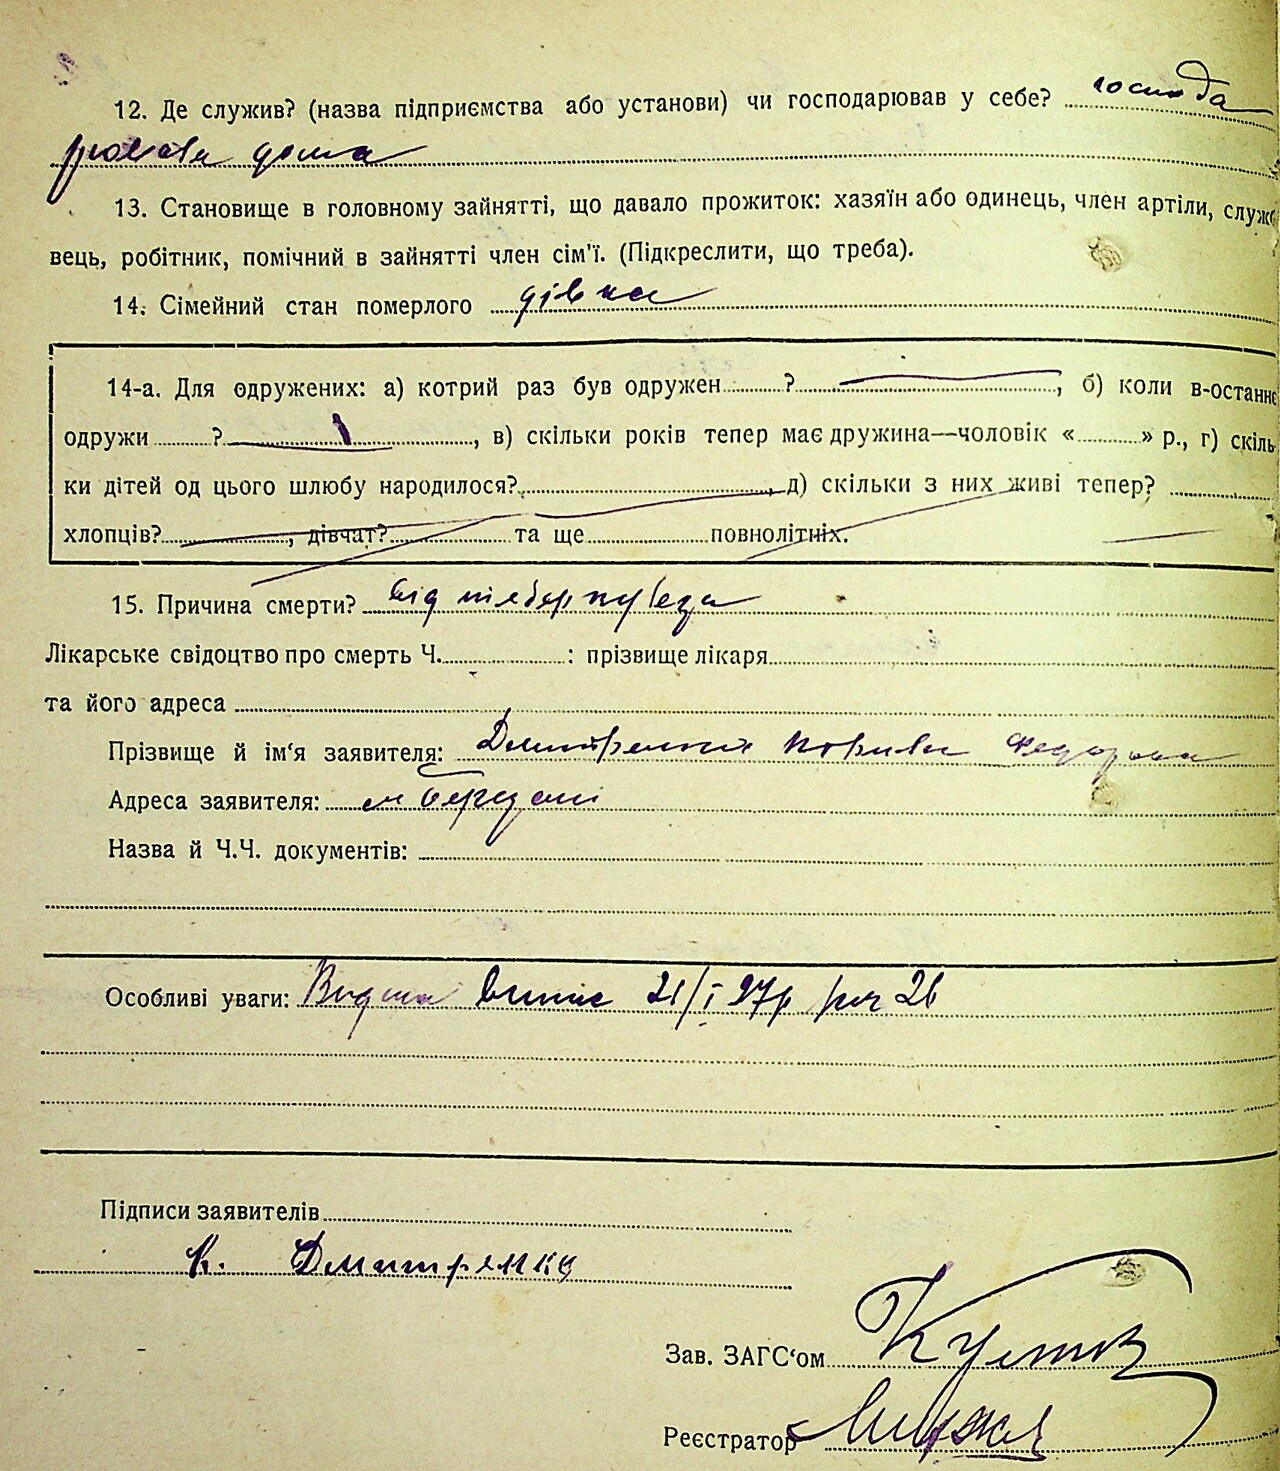 12. Де служив? (назва підприємства або установи) чи господарював у себе? господа
рювала дома
13. Становище в головному зайнятті, що давало прожиток: хазяїн або одинець, член артіли, служб
вець, робітник, помічний в зайнятті член сім'ї. (Підкреслити, що треба).
14. Сімейний стан померлого дівка
14-а. Для одружених: а) котрий раз був одружен ? , б) коли в-останнє
одружи ? , в) скільки років тепер має дружина—чоловік « » р., г) скіль-
ки дітей од цього шлюбу народилося? , д) скільки з них живі тепер?
хлопців? , дівчат? та ще повнолітніх.
15. Причина смерти? від тиберкульоза
Лікарське свідоцтво про смерть Ч. : прізвище лікаря
та його адреса
Прізвище й ім'я заявителя: Дмитренко
Адреса заявителя: м Березані
Назва й Ч.Ч. документів:
Особливі уваги: Видана випис 21/I 27р 26
Підписи заявителів
К. Дмитренко
Зав. ЗАГС'ом
Реєстратор